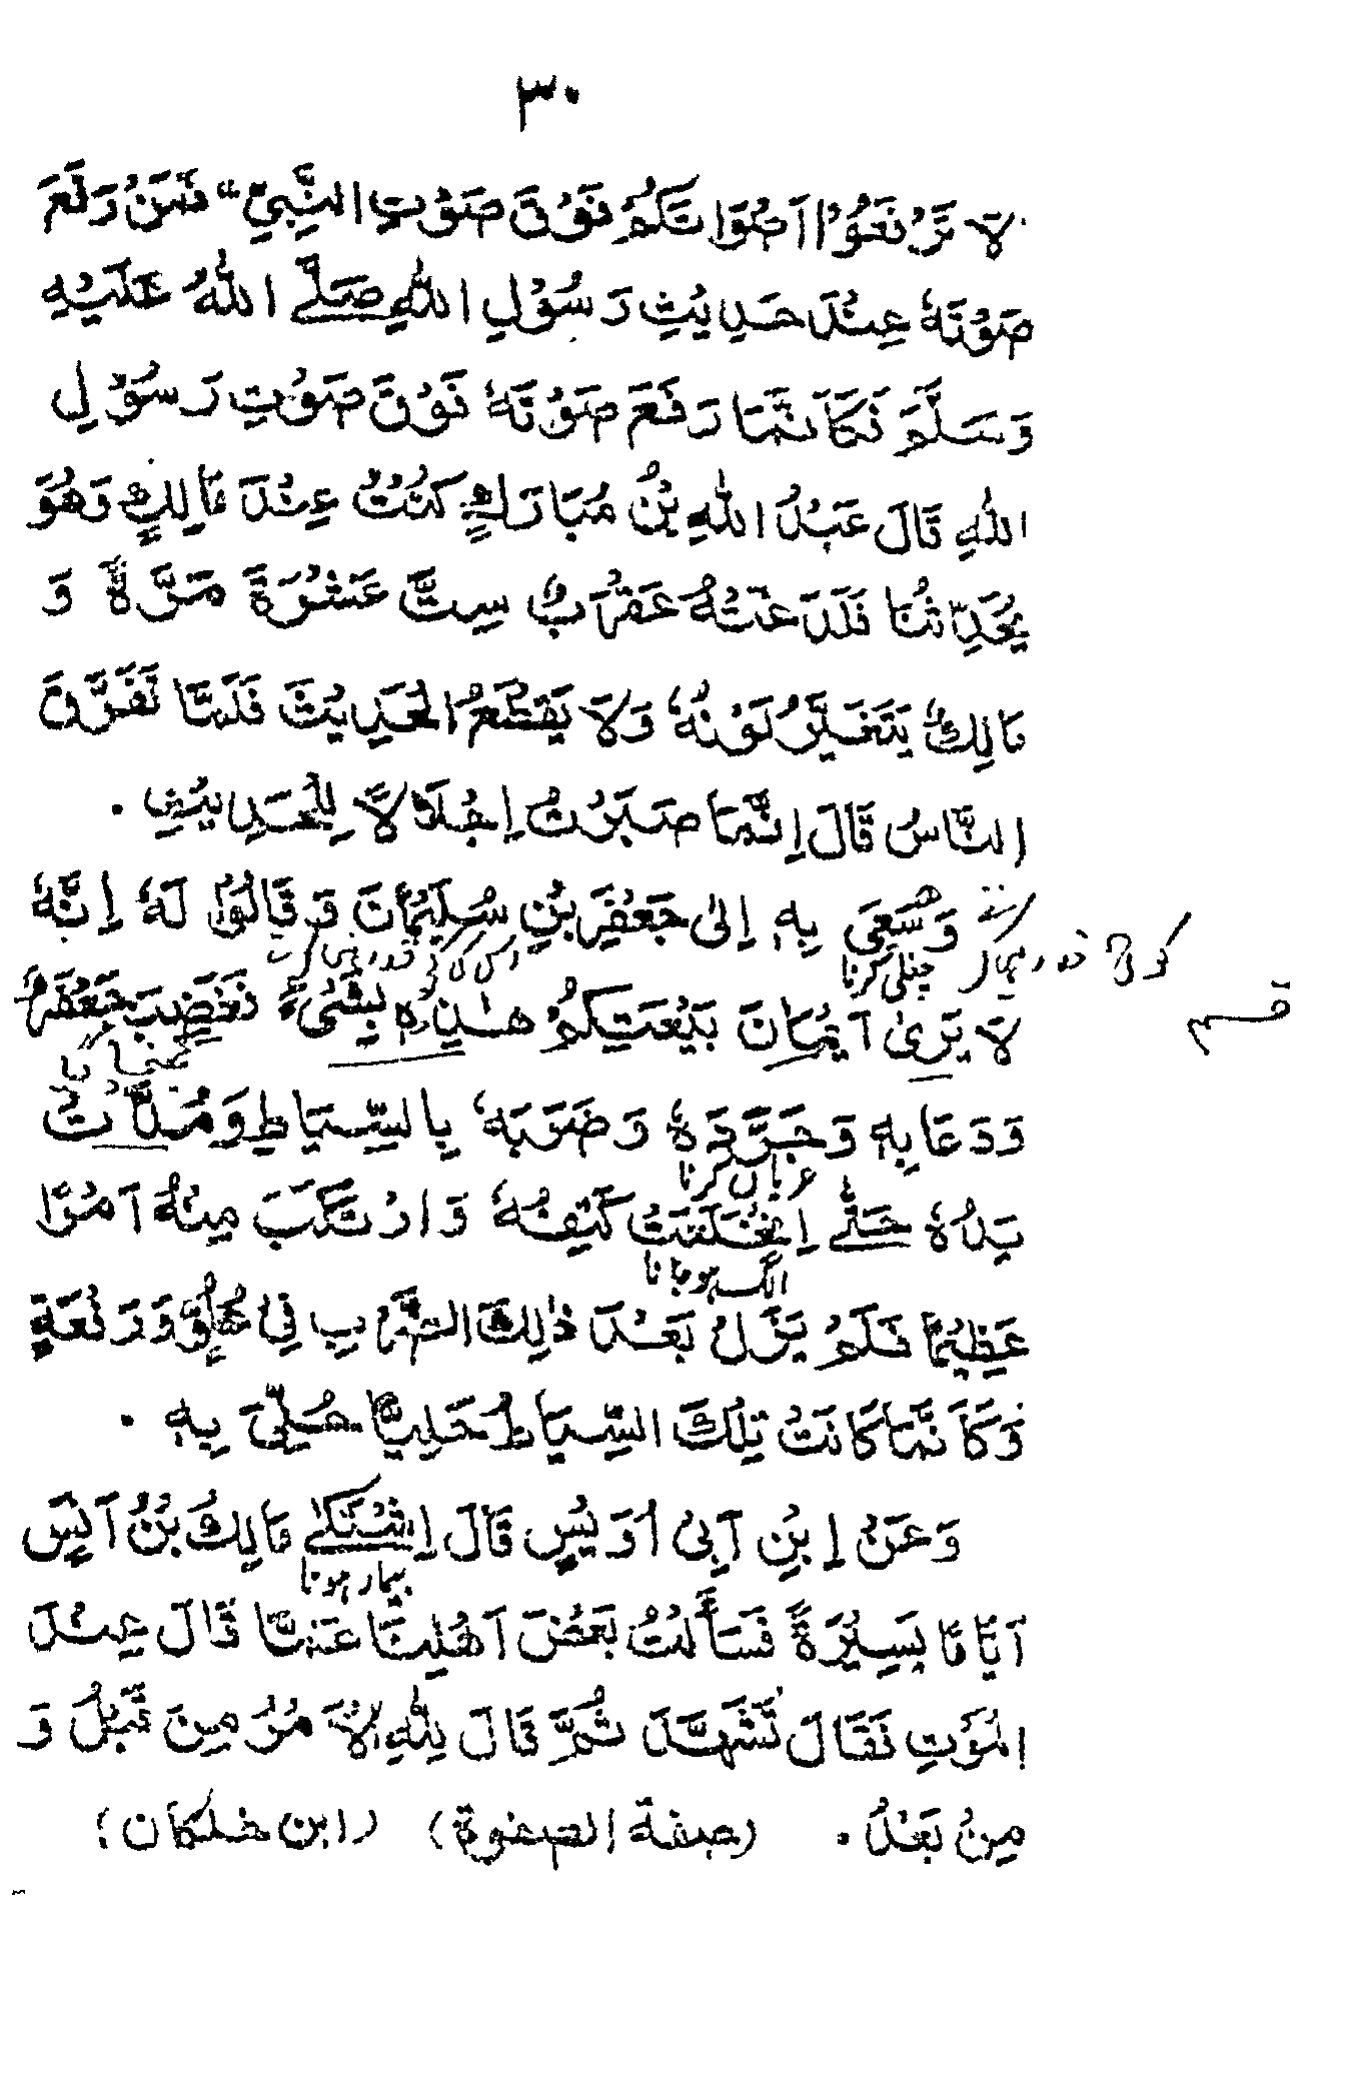 ٣٠
لَا تَرْفَعُوْا اَصْوَاتَكُمْ فَوْقَ صَوْتِ النَّبِيِّ" فَمَنْ رَفَعَ
صَوْتَهٗ عِنْدَ حَدِيْثِ رَسُوْلِ اللهِ صَلَّى اللهُ عَلَيْهِ
وَسَلَّمَ فَكَاَنَّمَا رَفَعَ صَوْتَهٗ فَوْقَ صَوْتِ رَسُوْلِ
اللهِ قَالَ عَبْدُ اللهِ بْنُ مُبَارَكٍ كُنْتُ عِنْدَ مَالِكٍ وَهُوَ
يُحَدِّثُنَا فَلَدَغَتْهُ عَقْرَبٌ سِتَّ عَشْرَةَ مَرَّةً وَ
مَالِكٌ يَتَغَيَّرُ لَوْنُهٗ وَلَا يَقْطَعُ الْحَدِيْثَ فَلَمَّا تَفَرَّقَ
النَّاسُ قَالَ اِنَّمَا صَبَرْتُ اِجْلَالًا لِلْحَدِيْثِ .
وَسُعِيَ بِهٖ اِلٰى جَعْفَرِ بْنِ سُلَيْمَانَ وَقَالُوْا لَهٗ اِنَّهٗ
چغلی کرنا
لَا يَرٰى اَيْمَانَ بَيْعَتِكُمْ هٰذِهٖ بِشَيْءٍ فَغَضِبَ جَعْفَرٌ
قسم
وَدَعَا بِهٖ وَجَرَّدَهٗ وَضَرَبَهٗ بِالسِّيَاطِ وَمُدَّتْ
عریاں کرنا
يَدُهٗ حَتّٰى اِنْخَلَعَتْ كَتِفُهٗ وَارْتَكَبَ مِنْهُ اَمْرًا
الگ ہو جانا
عَظِيْمًا فَلَمْ يَزَلْ بَعْدَ ذٰلِكَ الضَّرْبِ فِيْ عُلُوٍّ وَرَفْعَةٍ
وَكَاَنَّمَا كَانَتْ تِلْكَ السِّيَاطُ حَلِيًّا حُلِّيَ بِهٖ .
وَعَنْ اِبْنِ اَبِيْ اُوَيْسٍ قَالَ اِشْتَكٰى مَالِكُ بْنُ اَنَسٍ
بیمار ہونا
اَيَّامًا يَسِيْرَةً فَسَأَلْتُ بَعْضَ اَهْلِنَا عَمَّا قَالَ عِنْدَ
الْمَوْتِ فَقَالَ تَشَهَّدَ ثُمَّ قَالَ لِلّٰهِ الْاَمْرُ مِنْ قَبْلُ وَ
مِنْ بَعْدُ . (صفة الصفوة) (ابن خلكان)